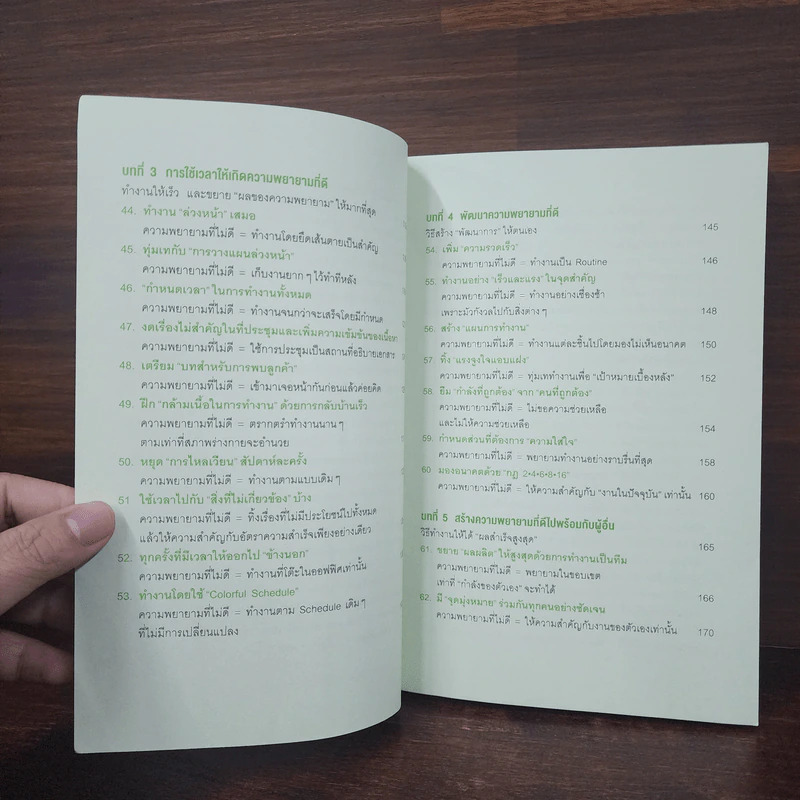 บทที่ 3 การใช้เวลาให้เกิดความพยายามที่ดี
ทำงานให้เร็ว และขยาย "ผลของความพยายาม" ให้มากที่สุด
44. ทำงาน "ล่วงหน้า" เสมอ
ความพยายามที่ไม่ดี = ทำงานโดยยึดเส้นตายเป็นสำคัญ
45. ทุ่มเทกับ "การวางแผนล่วงหน้า"
ความพยายามที่ไม่ดี = เก็บงานยาก ๆ ไว้ทำทีหลัง
46. "กำหนดเวลา" ในการทำงานทั้งหมด
ความพยายามที่ไม่ดี = ทำงานจนกว่าจะเสร็จโดยมีกำหนด
47. งดเรื่องไม่สำคัญในที่ประชุมและเพิ่มความเข้มข้นของเนื้อหา
ความพยายามที่ไม่ดี = ใช้การประชุมเป็นสถานที่อธิบายเอกสาร
48. เตรียม "บทสำหรับการพบลูกค้า"
ความพยายามที่ไม่ดี = เข้ามาเจอหน้ากันก่อนแล้วค่อยคิด
49. ฝึก "กล้ามเนื้อในการทำงาน" ด้วยการกลับบ้านเร็ว
ความพยายามที่ไม่ดี = ตรากตรำทำงานนาน ๆ
ตามเท่าที่สภาพร่างกายจะอำนวย
50. หยุด "การไหลเวียน" สัปดาห์ละครั้ง
ความพยายามที่ไม่ดี = ทำงานตามแบบเดิม ๆ
51 ใช้เวลาไปกับ "สิ่งที่ไม่เกี่ยวข้อง" บ้าง
ความพยายามที่ไม่ดี = ทิ้งเรื่องที่ไม่มีประโยชน์ไปทั้งหมด
แล้วให้ความสำคัญกับอัตราความสำเร็จเพียงอย่างเดียว
52. ทุกครั้งที่มีเวลาให้ออกไป "ข้างนอก"
ความพยายามที่ไม่ดี = ทำงานที่โต๊ะในออฟฟิศเท่านั้น
53. ทำงานโดยใช้ "Colorful Schedule"
ความพยายามที่ไม่ดี = ทำงานตาม Schedule เดิม ๆ
ที่ไม่มีการเปลี่ยนแปลง
บทที่ 4 พัฒนาความพยายามที่ดี
วิธีสร้าง "พัฒนาการ" ให้ตนเอง 145
54. เพิ่ม "ความรวดเร็ว"
ความพยายามที่ไม่ดี = ทำงานเป็น Routine 146
55. ทำงานอย่าง "เร็วและแรง" ในจุดสำคัญ
ความพยายามที่ไม่ดี = ทำงานอย่างเชื่องช้า
เพราะมัวกังวลไปกับสิ่งต่าง ๆ 148
56. สร้าง "แผนการทำงาน"
ความพยายามที่ไม่ดี = ทำงานแต่ละชิ้นไปโดยมองไม่เห็นอนาคต 150
57 ทิ้ง "แรงจูงใจแอบแฝง"
ความพยายามที่ไม่ดี = ทุ่มเททำงานเพื่อ "เป้าหมายเบื้องหลัง" 152
58 ยืม "กำลังที่ถูกต้อง" จาก "คนที่ถูกต้อง"
ความพยายามที่ไม่ดี = ไม่ขอความช่วยเหลือ
และไม่ให้ความช่วยเหลือ 154
59. กำหนดส่วนที่ต้องการ "ความใส่ใจ"
ความพยายามที่ไม่ดี = พยายามทำงานอย่างราบรื่นที่สุด 158
60 มองอนาคตด้วย "กฎ 2•4•6•8•16"
ความพยายามที่ไม่ดี = ให้ความสำคัญกับ "งานในปัจจุบัน" เท่านั้น 160
บทที่ 5 สร้างความพยายามที่ดีไปพร้อมกับผู้อื่น
วิธีทำงานให้ได้ "ผลสำเร็จสูงสุด" 165
61. ขยาย "ผลผลิต" ให้สูงสุดด้วยการทำงานเป็นทีม
ความพยายามที่ไม่ดี = พยายามในขอบเขต
เท่าที่ "กำลังของตัวเอง" จะทำได้ 166
62. มี "จุดมุ่งหมาย" ร่วมกันทุกคนอย่างชัดเจน
ความพยายามที่ไม่ดี = ให้ความสำคัญกับงานของตัวเองเท่านั้น 170